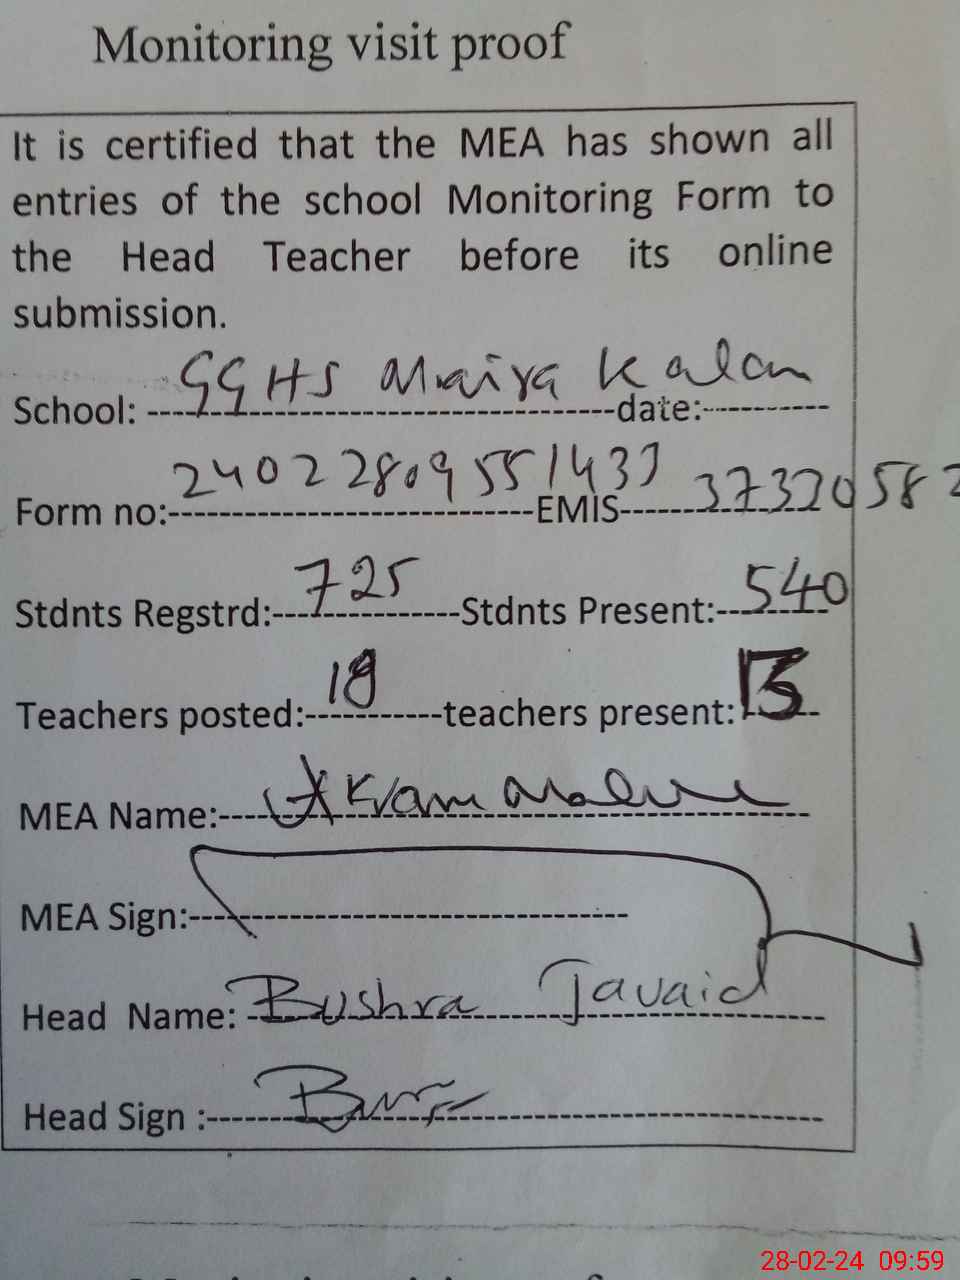 Monitoring visit proof
It is certified that the MEA has shown all
entries of the school Monitoring Form to
the Head Teacher before its online
submission.
School: GGHS Maira Kalan date:
Form no: 24022809551433 EMIS 3732058
Stdnts Regstrd: 725 Stdnts Present: 540
Teachers posted: 18 teachers present: 13
MEA Name: Akram
MEA Sign:
Head Name: Bushra Javaid
Head Sign :
28-02-24 09:59